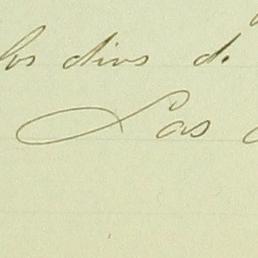 los dias d.
Las